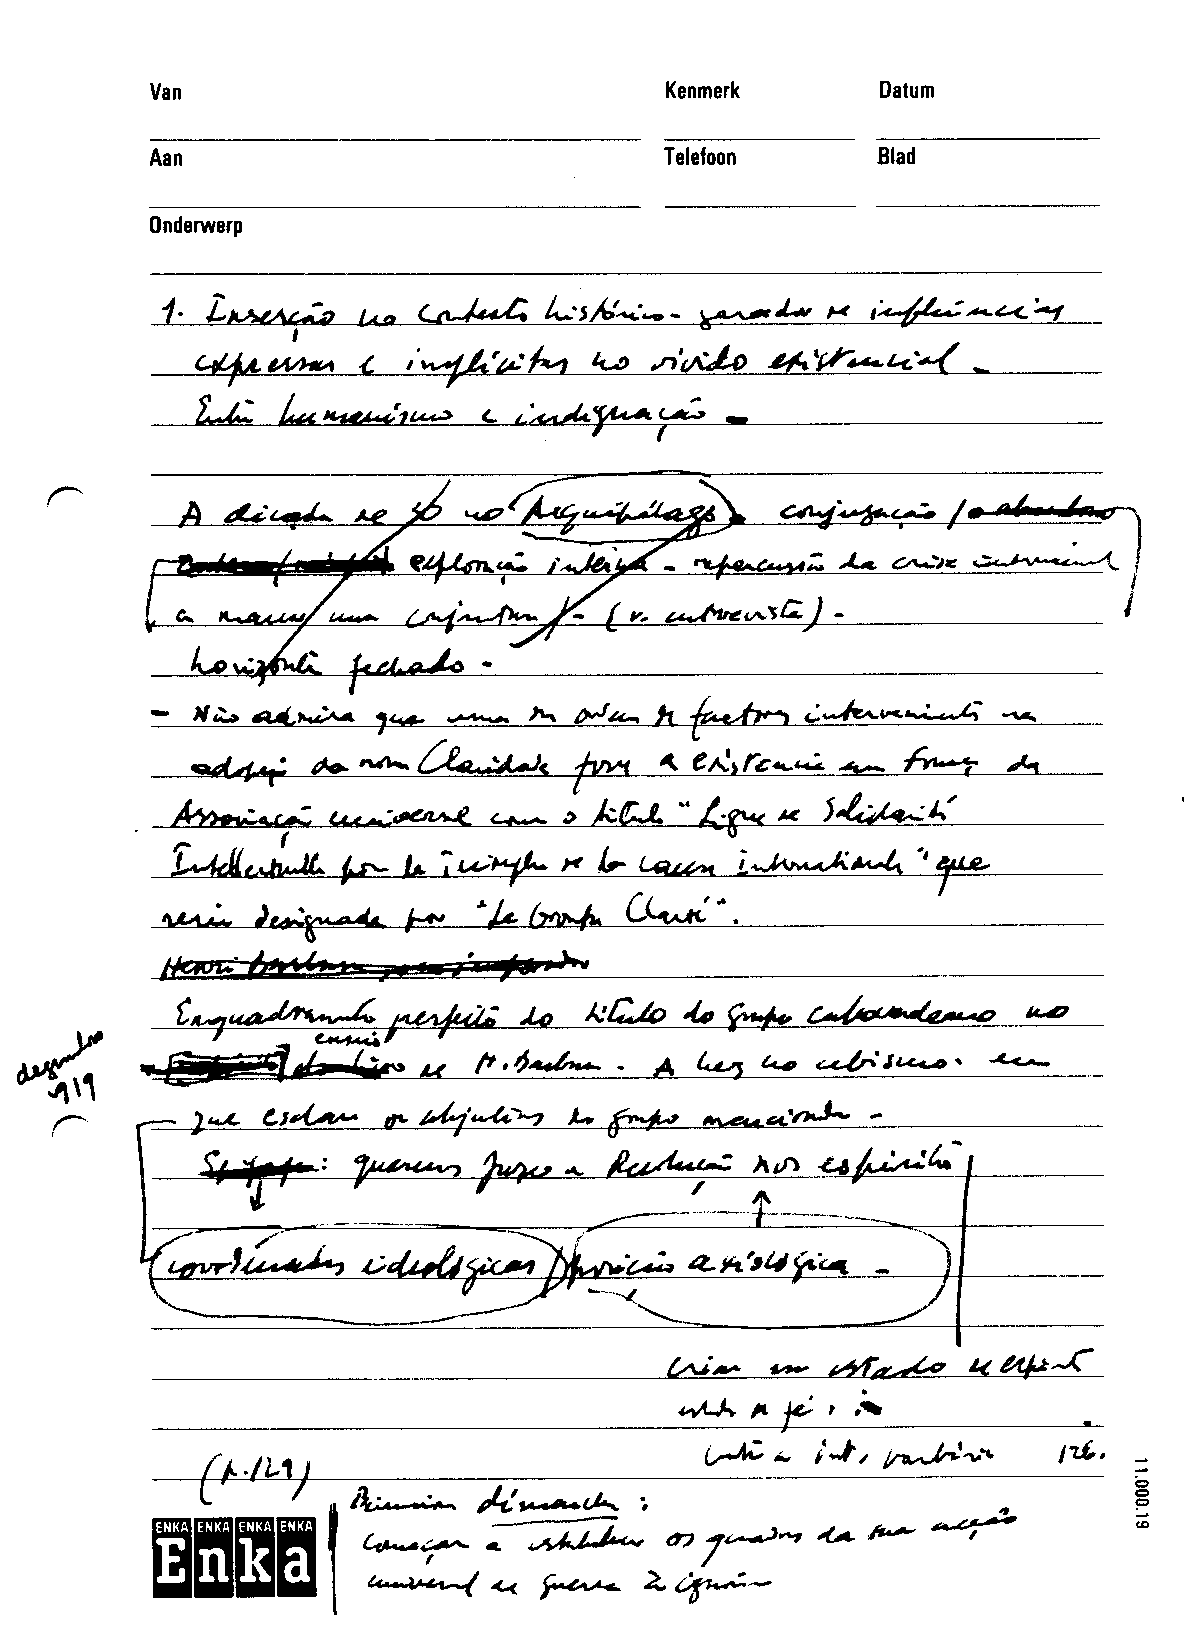 Van Kenmerk Datum
Aan Telefoon Blad
Onderwerp
1. Inserção no contexto histórico - de influências
expressas e implícitas no vivido existencial -
Entre humanismo e indignação -
A década de 30 no Arquipélago - conjugação /
exploração interna - repercussão da crise
a uma conjuntura - (v. entrevista) -
horizonte fechado -
- Não admira que uma de factores intervenientes na
da Claridade fosse a existência em França da
Associação universal com o título "Ligue de Solidarité
Intellectuelle pour le Triomphe de la cause internationale" que
seria designada por "Le Groupe Clarté".
Henri Barbusse
Enquadramento perfeito do título do grupo caboverdeano no
ensaio
dezembro
919
de H. Barbusse. A luz no abismo. em
que esclarece os objectivos do grupo mencionado -
: queremos fazer a Revolução nos espíritos
coordenadas ideológicas posição axiológica -
Criar um estado de espírito
de fé
126.
(p. 129)
11.000.19
ENKA ENKA ENKA ENKA
Enka
démarche :
Começar a estabelecer os quadros da sua acção
universal de guerra à